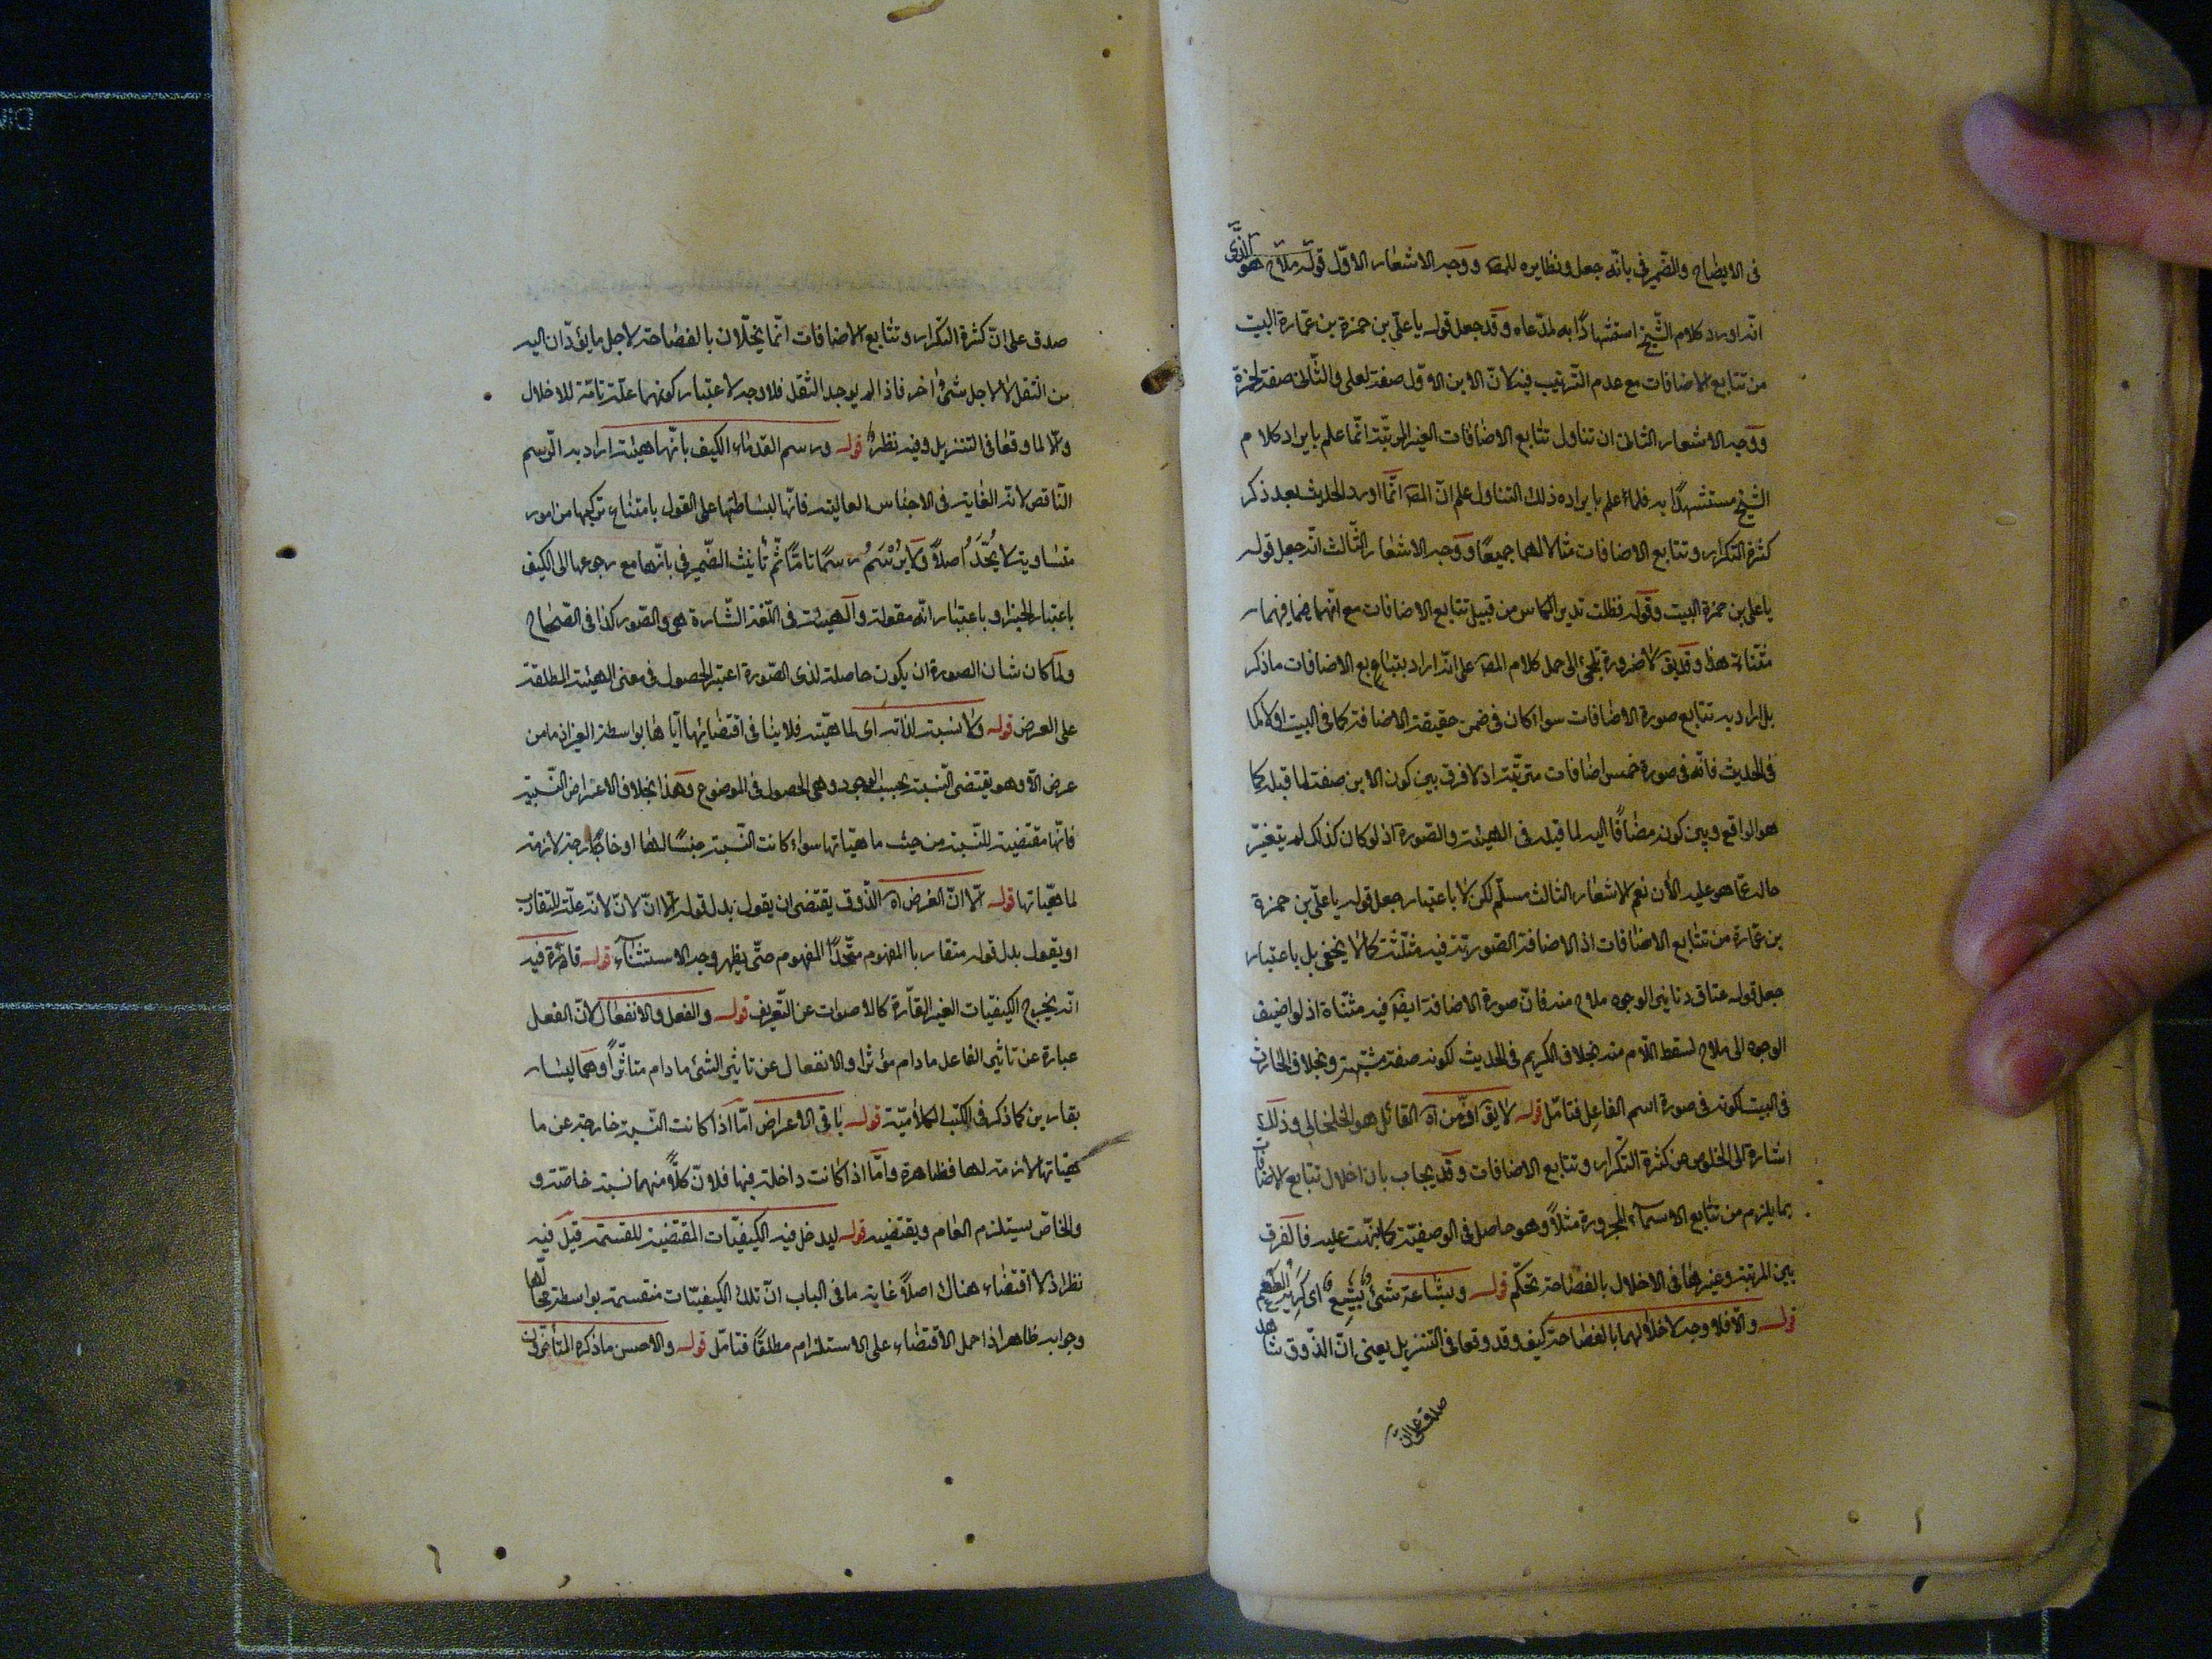 فى الايضاح والضمير فى بانه جعل ونظايره للمص ووجه الاشعار الاول قوله ملاح هو الذى
انه اورد كلام الشيخ استشهادًا به لمدعاه وقد جعل قوله يا على بن حمزة بن عمارة البيت
من تتابع الاضافات مع عدم الترتيب فيه لان الابن الاول صفة لعلى والثانى صفة لحمزة
ووجه الاشعار الثانى ان تناول تتابع الاضافات الغير المرتبة انما علم بايراد كلام
الشيخ مستشهدًا به فلما علم بايراده ذلك التناول علم ان المص انما اورد الحديث بعد ذكر
كثرة التكرار وتتابع الاضافات مثالا لهما جميعًا ووجه الاشعار الثالث انه جعل قوله
يا على بن حمزة البيت وقوله فظلت تدير الكاس من قبيل تتابع الاضافات مع انهما فيهما
مثناة هذا وقد يق لا ضرورة تلجئ الى حمل كلام المص على انه اراد بتتابع الاضافات ما ذكر
بل اراد به تتابع صورة الاضافات سواء كان فى ضمن حقيقة الاضافة كما فى البيت او لا كما
فى الحديث فانه فى صورة خمس اضافات مترتبة اذ لا فرق بين كون الابن صفة لما قبله كما
هو الواقع وبين كونه مضافًا اليه لما قبله فى الهيئة والصورة اذ لو كان كذلك لم يتغير
حاله عما هو عليه الأن نعم الاشعار الثالث مسلم لكن لا باعتبار جعل قوله يا على بن حمزة
بن عمارة من تتابع الاضافات اذ الاضافة الصورية فيه مثلثة كما لا يخفى بل باعتبار
جعل قوله عتاق دنانير الوجوه ملاح منه فان صورة الاضافة ايضا فيه مثناة اذ لو اضيف
الوجوه الى ملاح لسقط اللام منه بخلاف الكريم فى الحديث لكونه صفة مشبهة وبخلاف الجارث
فى البيت لكونه فى صورة اسم الفاعل فتامل قوله لا يق ان من اه القائل هو الخلخالى وذلك
اشارة الى الخلوص من كثرة التكرار وتتابع الاضافات وقد يجاب بان اخلال تتابع الاضافات
بما يلزم من تتابع الاسمآء المجرورة مثلاً وهو حاصل فى الوصفية كما نبهت عليه فالفرق
بين المرتبة وغيرها فى الاخلال بالفصاحة تحكم قوله وبشاعة شئ بشع اى كريه الطعم
قوله والا فلا وجه لاخلالهما بالفصاحة كيف وقد وقعا فى التنزيل يعنى ان الذوق شاهد
صدق على ان
صدق على ان كثرة التكرار وتتابع الاضافات انما يخلان بالفصاحة لاجل ما يؤديان اليه
من الثقل لا لاجل شئ اخر فاذا لم يوجد الثقل فلا وجه لاعتبار كونهما علة تامة للاخلال
والا لما وقعا فى التنزيل وفيه نظر قوله ورسم القدماء الكيف بانها هيئة اراد به الرسم
الناقص لانه الغاية فى الاجناس العالية فانها لبساطتها على القول بامتناع تركبها من امور
متساوية لا يُحَدّ اصلاً ولا يُرْسَمُ رسمًا تامًا ثم تأنيث الضمير فى بانها مع رجوعها الى الكيف
باعتبار الخبر او باعتبار انه مقولة والهيئة فى اللغة الشارة هى والصور كذا فى الصحاح
ولما كان شان الصورة ان يكون حاصلة لذى الصورة اعتبر الحصول فى معنى الهيئة المطلقة
على العرض قوله ولا نسبة لذاته اى لماهيته فلا ينافى اقتضائها اياها بواسطة الغير اذ ما من
عرض الا وهو يقتضى النسبة بحسب الوجود وهى الحصول فى الموضوع وهذا بخلاف الاعراض النسبية
فانها مقتضية للنسبة من حيث ماهياتها سواء كانت النسبة جنسًا لها او خارجة لازمة
لماهياتها قوله الا ان الغرض اه الذوق يقتضى ان يقول بدل قوله الا ان لان لانه علة للتقارب
او يقول بدل قوله متقاربا المفهوم متحدًا المفهوم حتى يظهر وجه الاستثناء قوله قارة فيه
انه يخرج الكيفيات الغير القارة كالاصوات عن التعريف قوله والفعل والانفعال لان الفعل
عبارة عن تاثير الفاعل ما دام مؤثرا والانفعال عن تاثير الشئ ما دام متاثرًا وهما ليسا
بقارين كما ذكر فى الكتب الكلامية قوله باقى الاعراض اما اذا كانت النسبة خارجة عن ما
هياتها لازمة لها فظاهرة واما اذا كانت داخلة فيها فلان كلًا منهما نسبة خاصة و
والخاص يستلزم العام ويقتضيه قوله ليدخل فيه الكيفيات المقتضية للقسمة قيل فيه
نظر اذ لا اقتضاء هناك اصلاً غاية ما فى الباب ان تلك الكيفيات منقسمة بواسطة محالها
وجوابه ظاهر اذا حمل الاقتضاء على الاستلزام مطلقًا فتامل قوله والاحسن ما ذكره المتأخرون